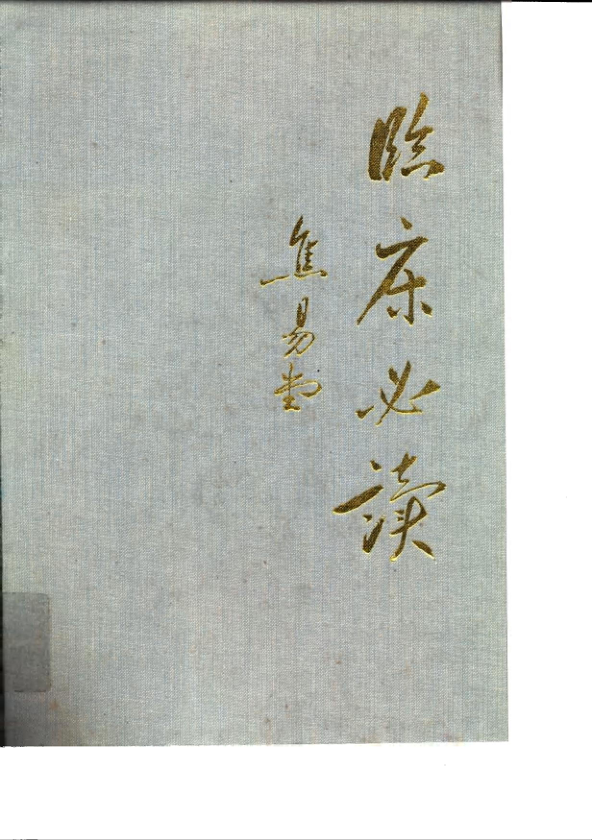 臨床必讀
焦易堂